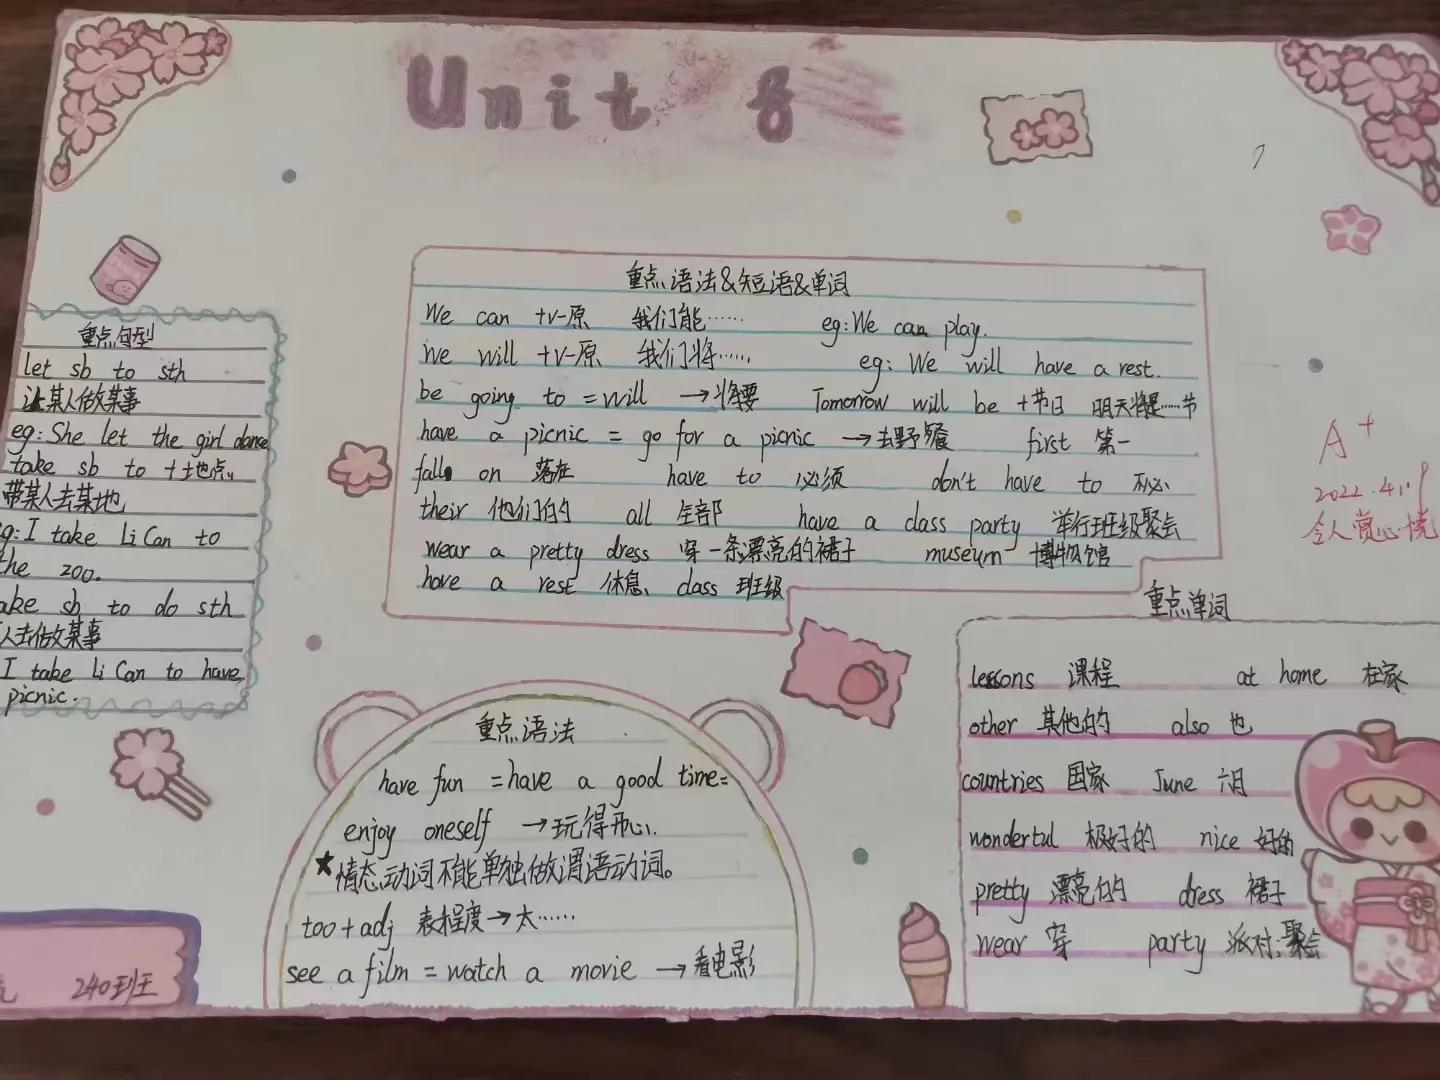 Unit 8
重点句型
let sb to sth
让某人做某事
eg: She let the girl dance
take sb to +地点
带某人去某地
g: I take Li Can to
the zoo.
ake sb to do sth
人去做某事
I take Li Can to have
picnic.
重点语法&短语&单词
We can +v-原 我们能…… eg: We can play.
We will +v-原 我们将…… eg: We will have a rest.
be going to = will →将要 Tomorrow will be +节日 明天将是……节
have a picnic = go for a picnic →去野餐 first 第一
fall on 落在 have to 必须 don't have to 不必
their 他们的 all 全部 have a class party 举行班级聚会
wear a pretty dress 穿一条漂亮的裙子 museum 博物馆
have a rest 休息 class 班级
A+
2022.4.19
令人赏心悦
重点语法
have fun = have a good time =
enjoy oneself →玩得开心
★情态动词不能单独做谓语动词。
too + adj 表程度→太……
see a film = watch a movie →看电影
重点单词
lessons 课程 at home 在家
other 其他的 also 也
countries 国家 June 六月
wonderful 极好的 nice 好的
pretty 漂亮的 dress 裙子
wear 穿 party 派对;聚会
240班